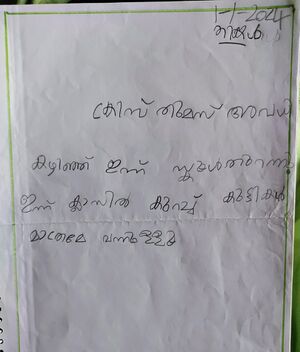 1-1-2024
തിങ്കൾ
ക്രിസ്തുമസ് അവധി
കഴിഞ്ഞ് ഇന്ന് സ്കൂൾതുറന്നു
ഇന്ന് ക്ലാസിൽ കുറച്ച് കുട്ടികൾ
മാത്രമേ വന്നുള്ളൂ